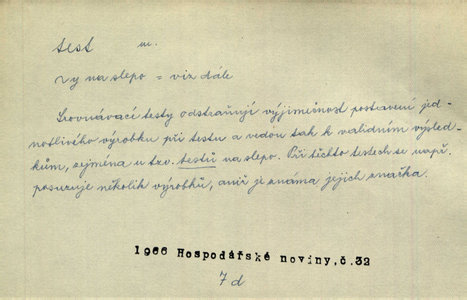 test m.
~y na slepo = viz dále
Srovnávací testy odstraňují výjimečnost postavení jed-
notlivého výrobku při testu a vedou tak k validním výsled-
kům, zejména u tzv. testů na slepo. Při těchto testech se např.
posuzuje několik výrobků, aniž je známa jejich značka.
1966 Hospodářské noviny,č.32
7d